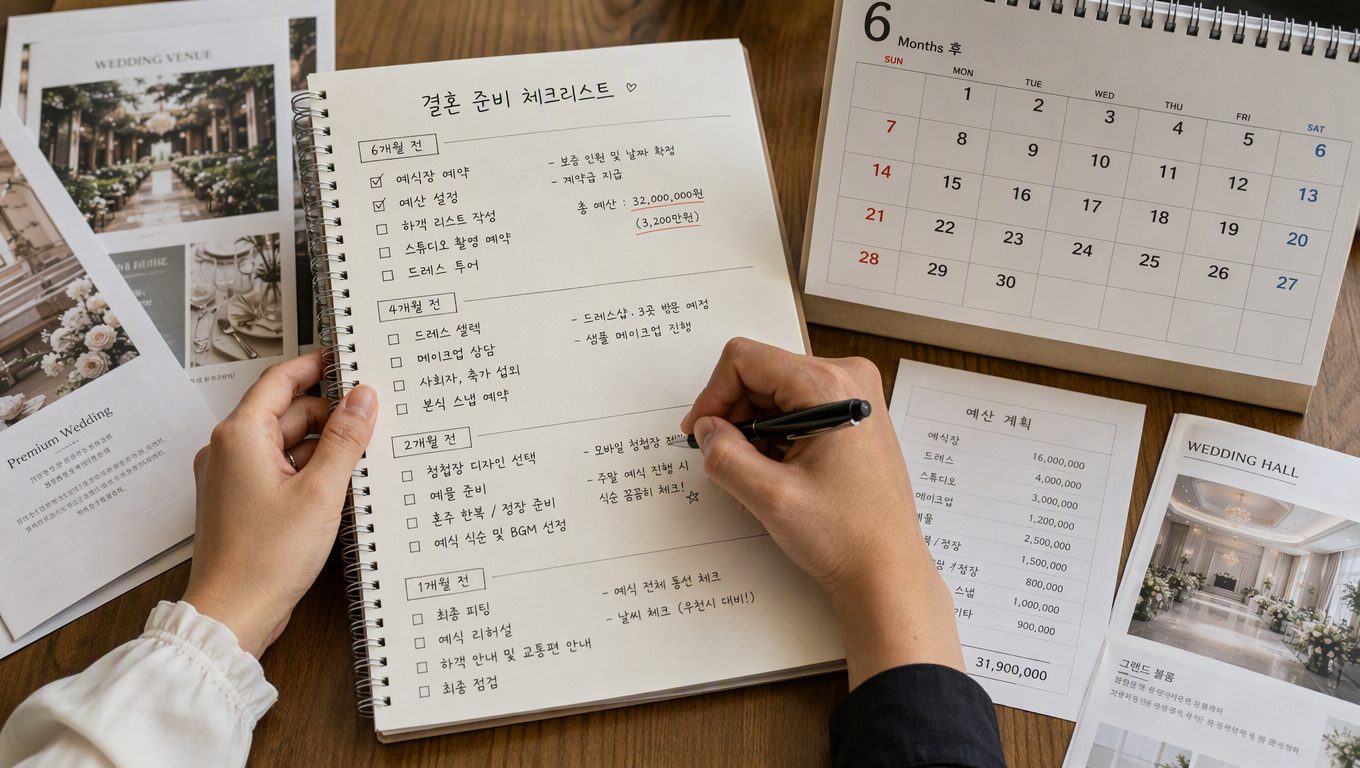 WEDDING VENUE
Premium Wedding
결혼 준비 체크리스트 ♡
6개월 전
☑ 예식장 예약
☑ 예산 설정
☐ 하객 리스트 작성
☐ 스튜디오 촬영 예약
☐ 드레스 투어
- 보증 인원 및 날짜 확정
- 계약금 지급
총 예산 : 32,000,000원
(3,200만원)
4개월 전
☐ 드레스 셀렉
☐ 메이크업 상담
☐ 사회자, 축가 섭외
☐ 본식 스냅 예약
- 드레스샵 · 3곳 방문 예정
- 샘플 메이크업 진행
2개월 전
☐ 청첩장 디자인 선택
☐ 예물 준비
☐ 혼주 한복 / 정장 준비
☐ 예식 식순 및 BGM 선정
- 모바일 청첩장
- 주말 예식 진행 시
식순 꼼꼼히 체크! ☆
1개월 전
☐ 최종 피팅
☐ 예식 리허설
☐ 하객 안내 및 교통편 안내
☐ 최종 점검
- 예식 전체 동선 체크
- 날씨 체크 (우천시 대비!)
6 Months 후
SUN MON TUE WED THU FRI SAT
1 2 3 4 5 6
7 8 9 10 11 12 13
14 15 16 17 18 19 20
21 22 23 24 25 26 27
28 29 30
예산 계획
예식장 16,000,000
드레스 4,000,000
스튜디오 3,000,000
메이크업 1,200,000
2,500,000
/정장 1,500,000
/정장 800,000
스냅 1,000,000
기타 900,000
31,900,000
WEDDING HALL
그랜드 볼룸